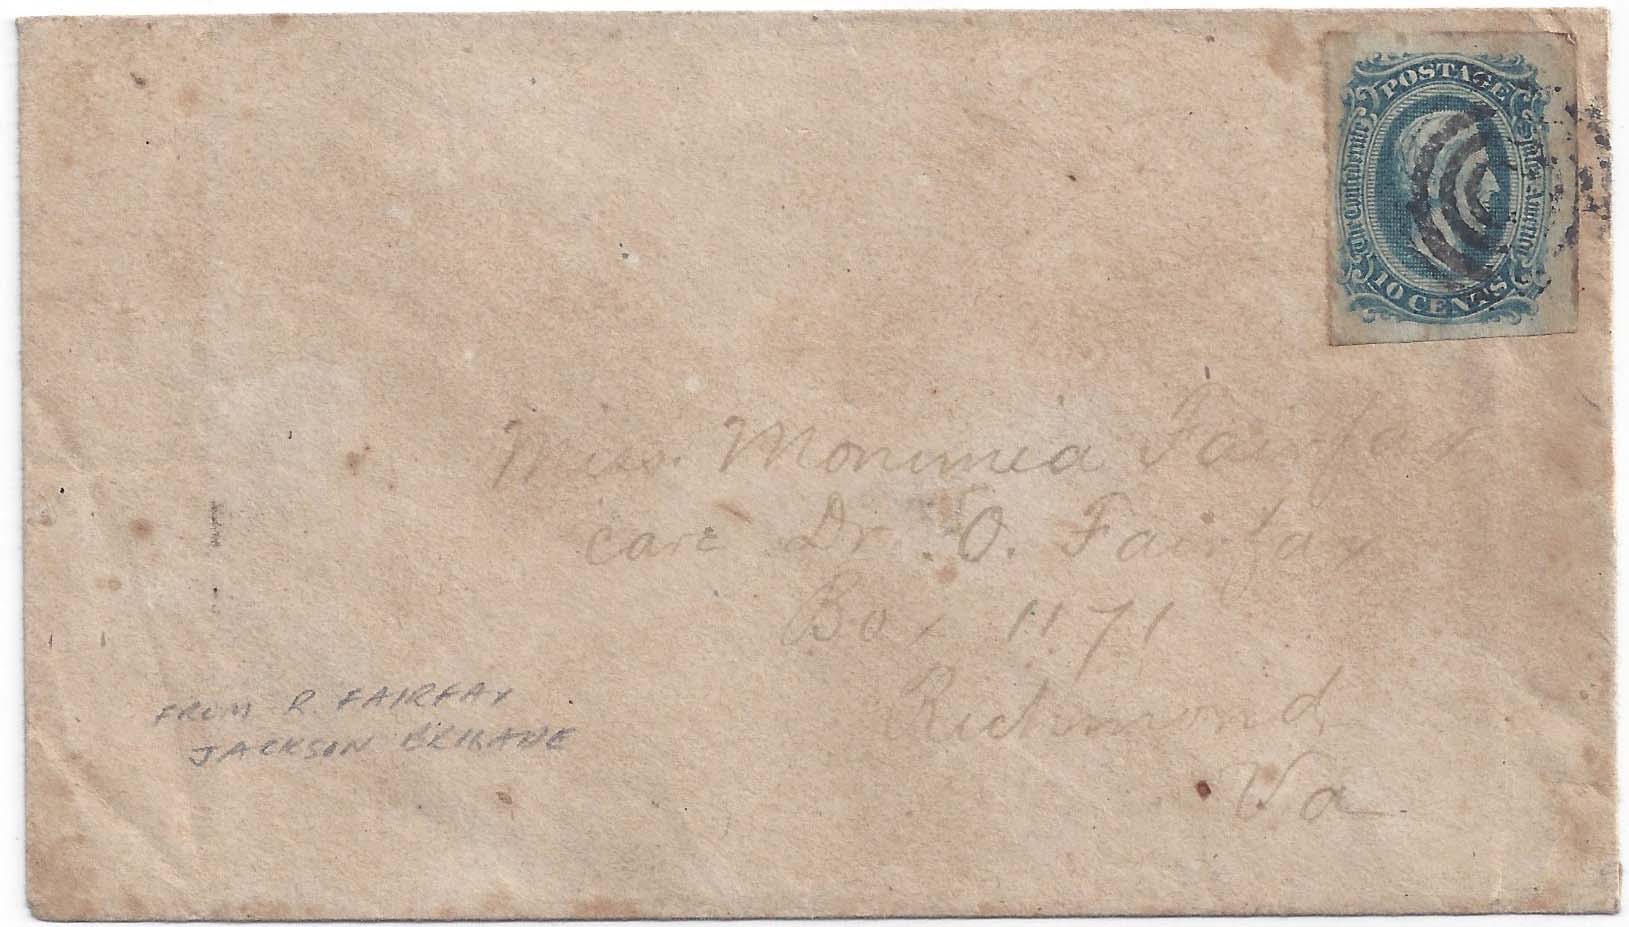 POSTAGE
The Confederate States of America
10 CENTS
Miss. Monimia Fairfax
care Dr. O. Fairfax
Box 1171
Richmond
Va
FROM R. FAIRFAX
JACKSON BRIGADE